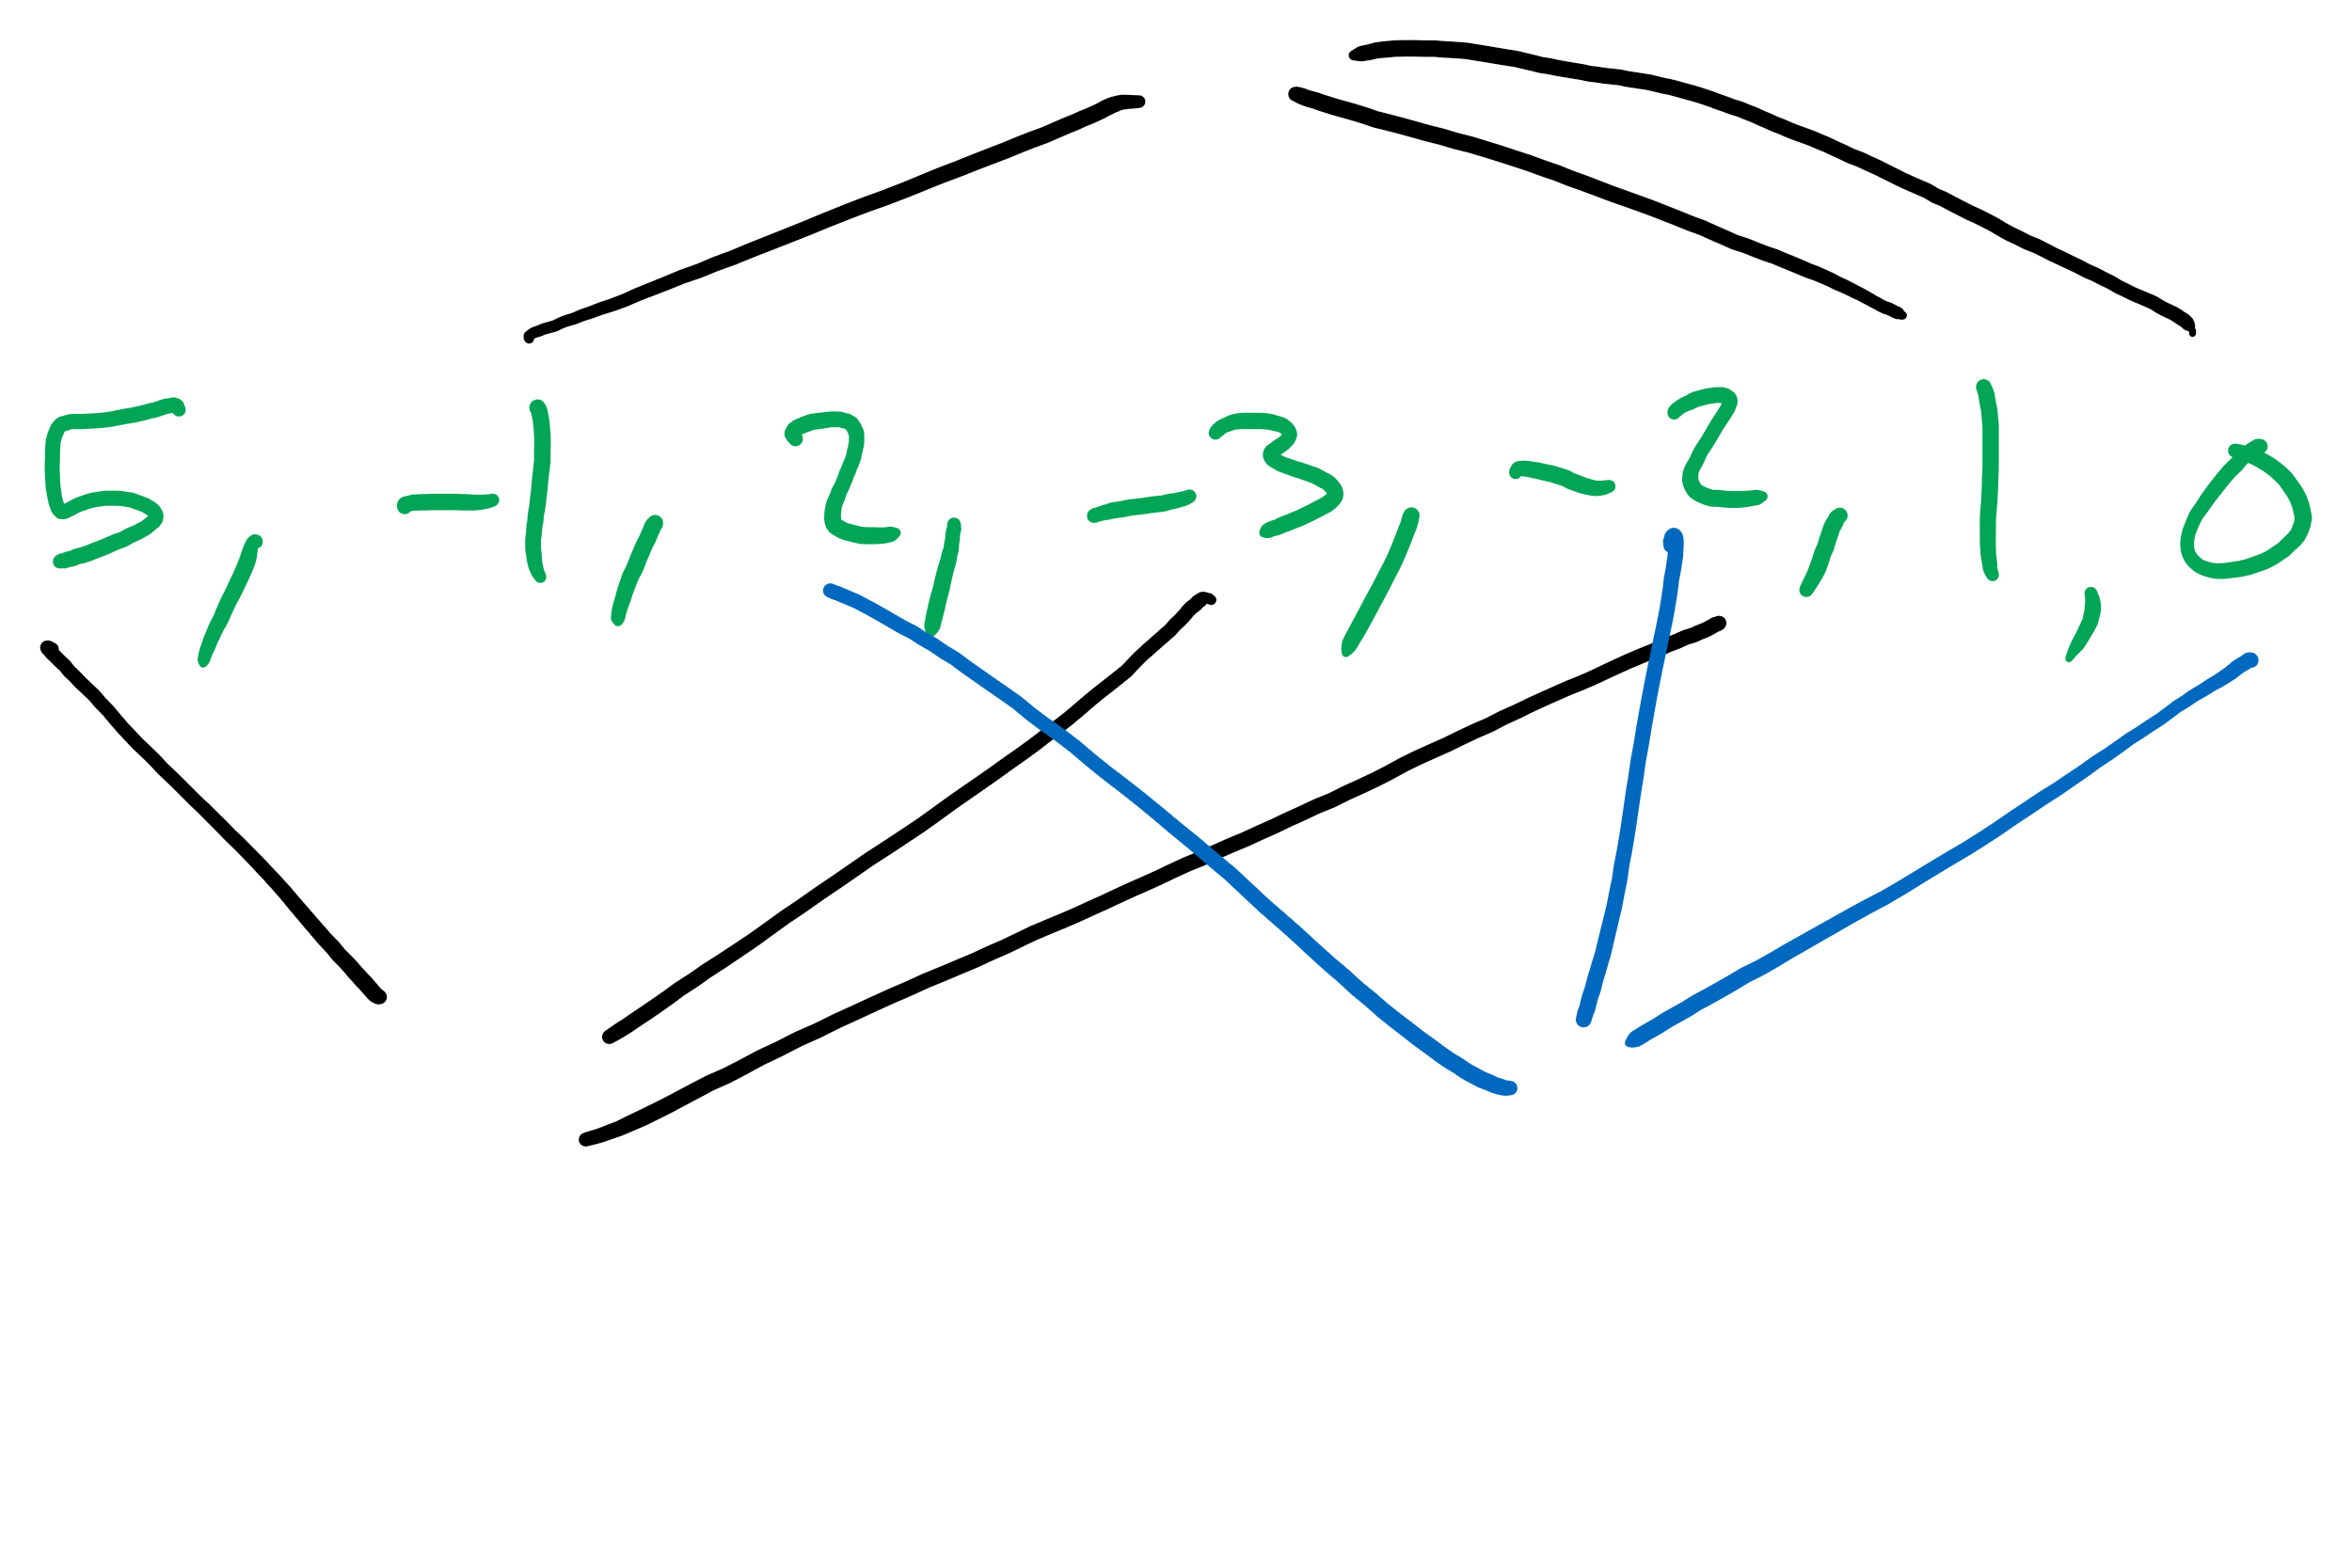 5, -1, 2, -3, -2, 1, 0